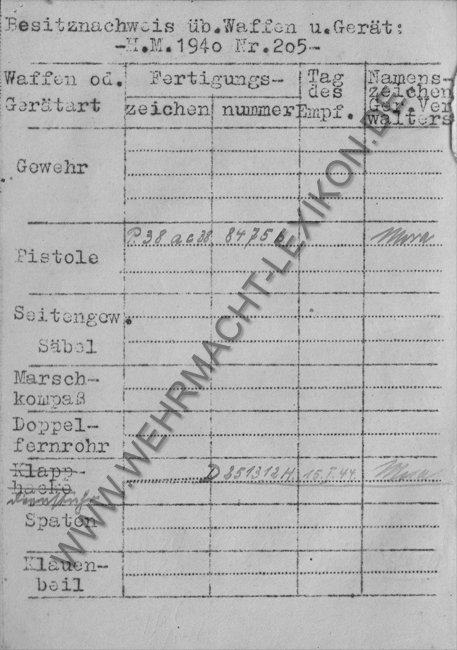 Besitznachweis üb.Waffen u.Gerät:
-H.M.1940 Nr.205-
Waffen od. Gerätart
Fertigungs-
zeichen nummer
Tag des Empf.
Namens-
zeichen
Ger.Ver
walters
Gewehr
Pistole P.38 ac 38 8475
Seitengew.
Säbel
Marsch-
kompaß
Doppel-
fernrohr
Klapp-
hacke D 851312H 15.5.44
Spaten
Klauen-
beil
WWW.WEHRMACHT-LEXIKON.DE